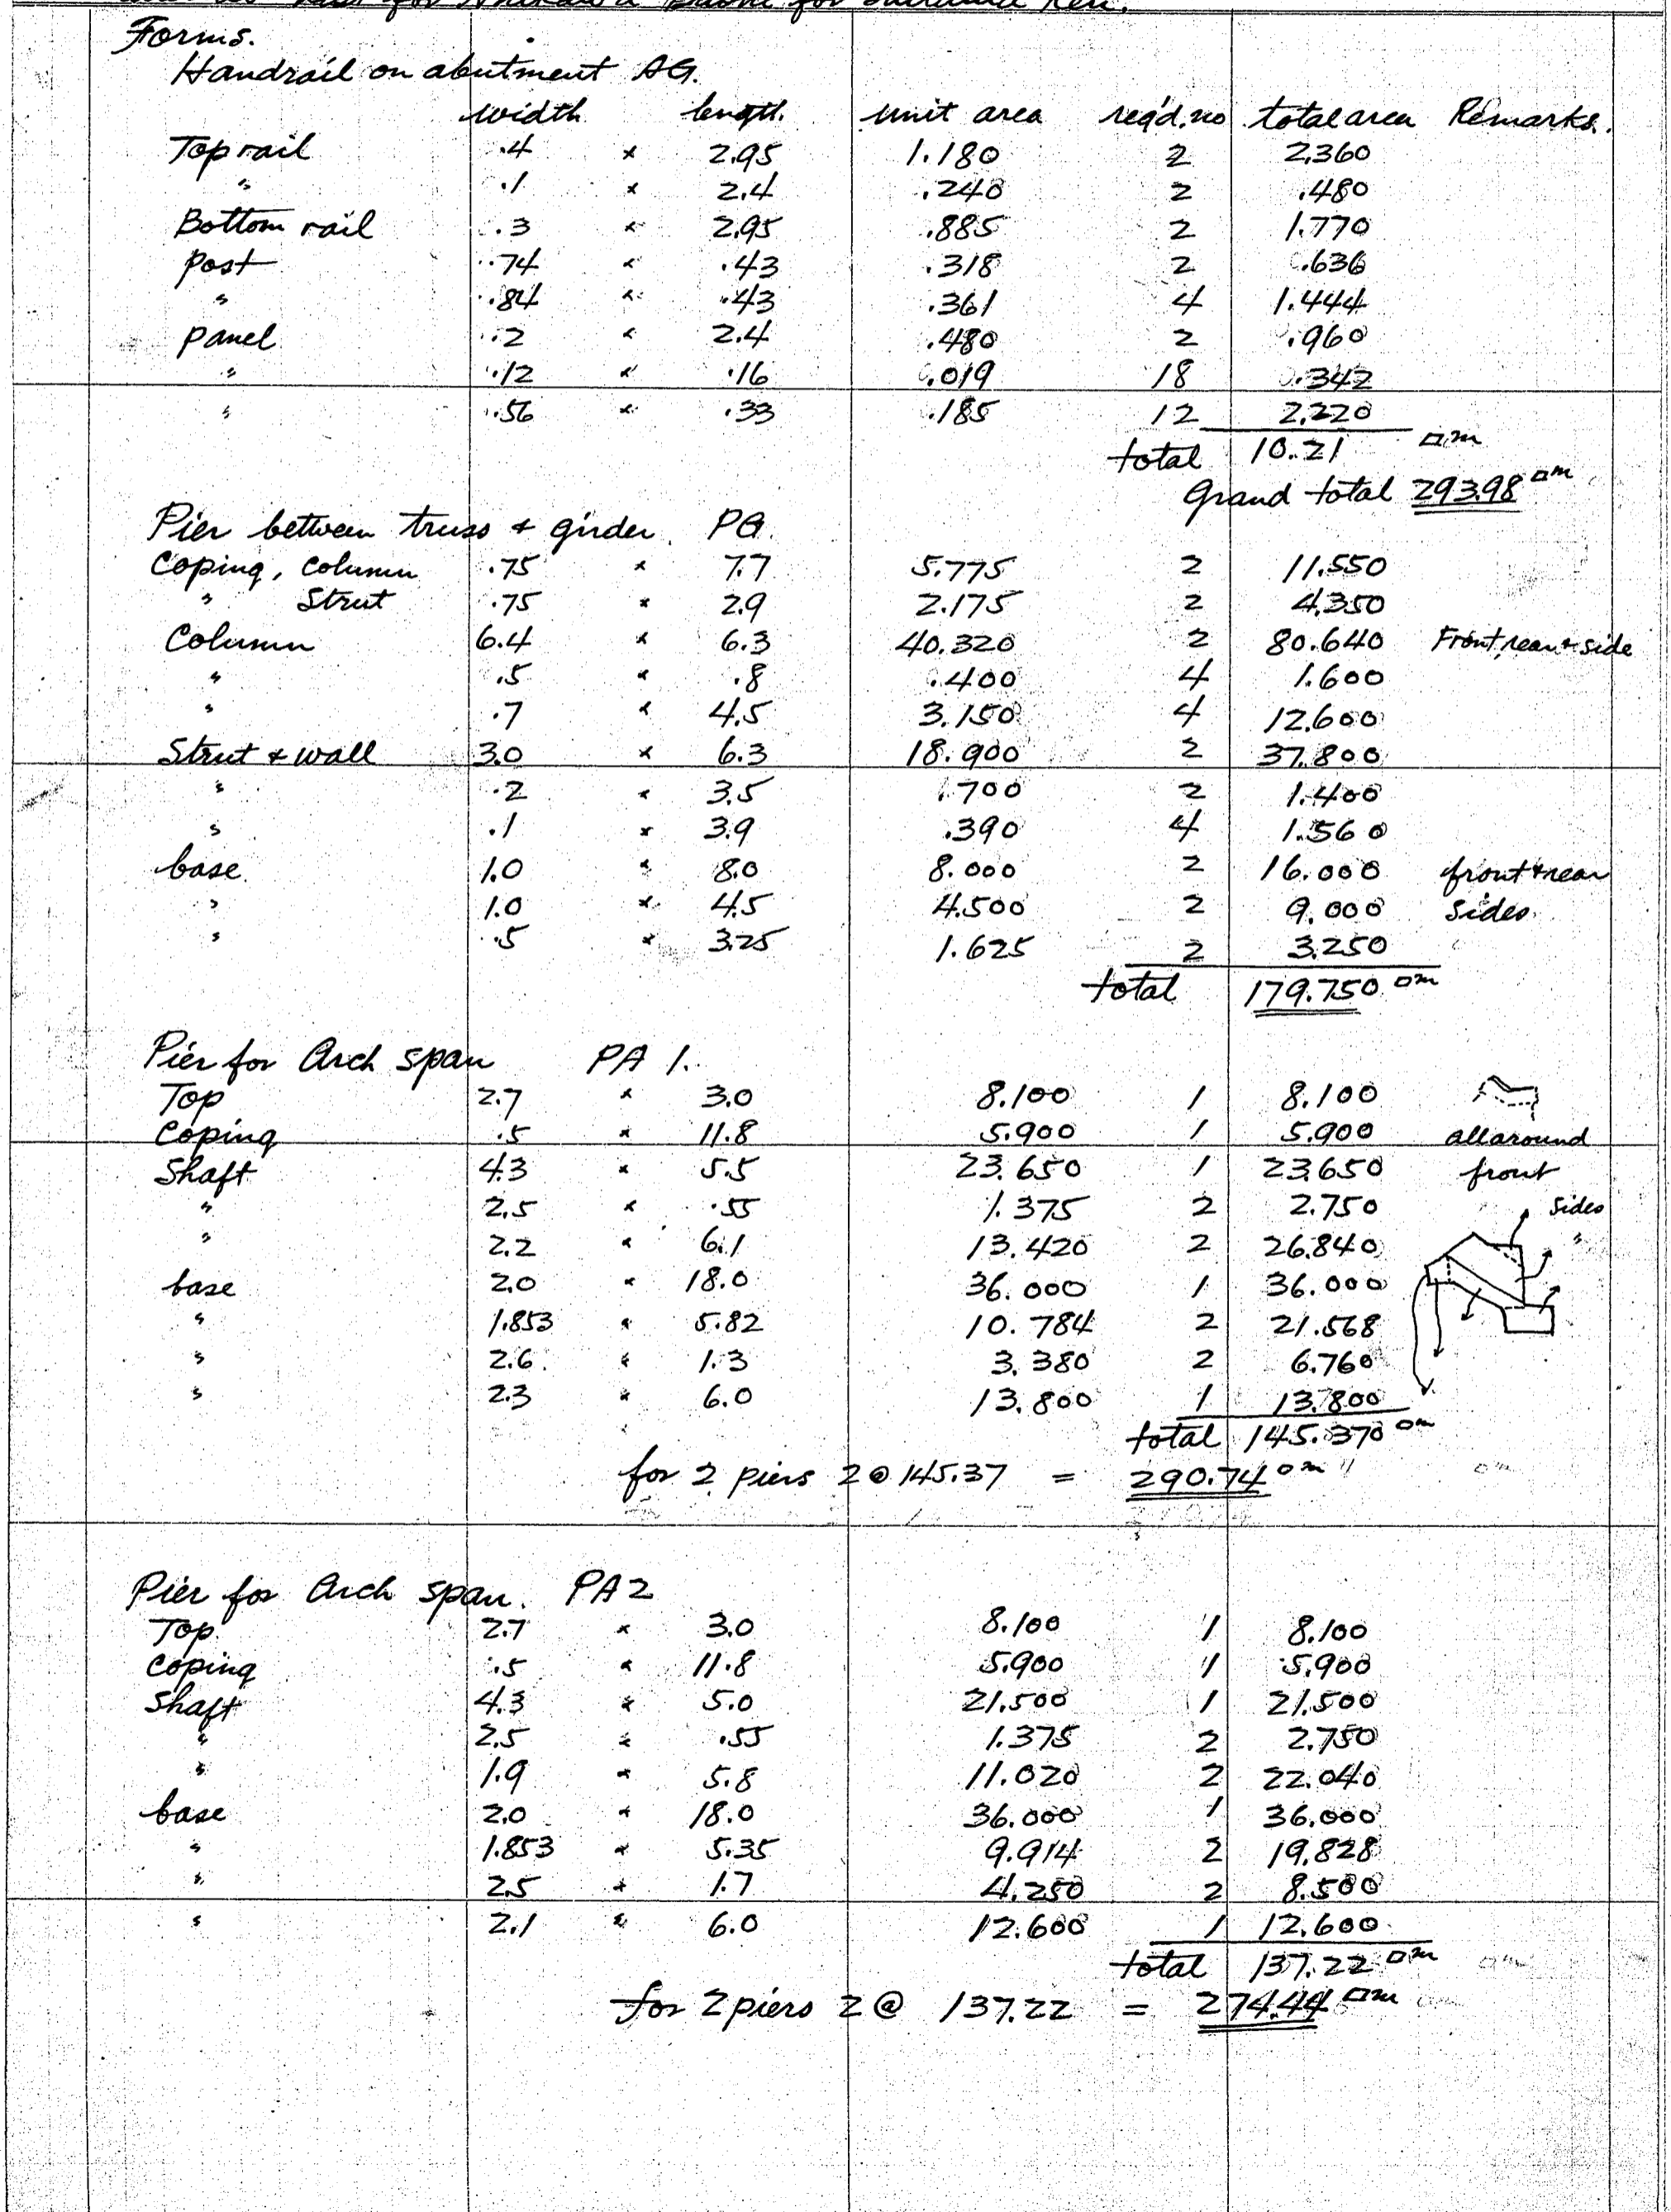 Forms.
Handrail on abutment AG.
width length. unit area req'd. no total area Remarks.
Top rail .4 × 2.95 1.180 2 2.360
" .1 × 2.4 .240 2 .480
Bottom rail .3 × 2.95 .885 2 1.770
post .74 × .43 .318 2 .636
" .84 × .43 .361 4 1.444
panel .2 × 2.4 .480 2 .960
" .12 × .16 .019 18 .342
" .56 × .33 .185 12 2.220
total 10.21 □m
Grand total 293.98 □m
Pier between truss & girder. PG.
Coping, column .75 × 7.7 5.775 2 11.550
" Strut .75 × 2.9 2.175 2 4.350
Column 6.4 × 6.3 40.320 2 80.640 Front, rear & side
" .5 × .8 .400 4 1.600
" .7 × 4.5 3.150 4 12.600
Strut & wall 3.0 × 6.3 18.900 2 37.800
" .2 × 3.5 .700 2 1.400
" .1 × 3.9 .390 4 1.560
base 1.0 " 8.0 8.000 2 16.000 front & rear
" 1.0 × 4.5 4.500 2 9.000 Sides.
" .5 × 3.25 1.625 2 3.250
total 179.750 □m
Pier for Arch span PA 1.
Top 2.7 × 3.0 8.100 1 8.100
Coping .5 × 11.8 5.900 1 5.900 all around
Shaft 4.3 × 5.5 23.650 1 23.650 front
" 2.5 × .55 1.375 2 2.750 Sides
" 2.2 × 6.1 13.420 2 26.840 "
base 2.0 × 18.0 36.000 1 36.000
" 1.853 × 5.82 10.784 2 21.568
" 2.6 × 1.3 3.380 2 6.760
" 2.3 × 6.0 13.800 1 13.800
total 145.370 □m
for 2 piers 2 @ 145.37 = 290.74 □m
Pier for Arch span. PA2
Top 2.7 × 3.0 8.100 1 8.100
Coping .5 × 11.8 5.900 1 5.900
Shaft 4.3 × 5.0 21.500 1 21.500
" 2.5 × .55 1.375 2 2.750
" 1.9 × 5.8 11.020 2 22.040
base 2.0 × 18.0 36.000 1 36.000
" 1.853 × 5.35 9.914 2 19.828
" 2.5 × 1.7 4.250 2 8.500
" 2.1 × 6.0 12.600 1 12.600
total 137.22 □m
for 2 piers 2 @ 137.22 = 274.44 □m